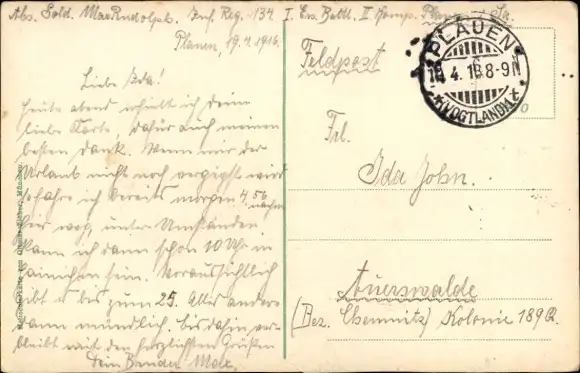 Abs. Sold. Max Rudolph. Inf. Reg. 134 I. Ers. Batl. II Komp. Plauen i. Sa.
Plauen, 19.4.1916.
Liebe Ida!
Heute abend erhielt ich deine
liebe Karte, dafür auch meinen
besten Dank. Wenn mir der
Urlaub nicht noch vergeht wird
fahre ich bereits morgen 4.56 nachm
hier weg, unter Umständen
kann ich dann schon 10 Uhr in
ainichen sein. Voraussichtlich
ibt es bis zum 25. Alles andere
dann mündlich. bis dahin ver-
bleibt mit den herzlichsten Grüßen
Dein Bruder Max.
Feldpost
PLAUEN
19.4.16.8-9N
(VOGTLAND) 1 t
Frl.
Ida John.
Auerswalde
(Bez. Chemnitz) Kolonie 189